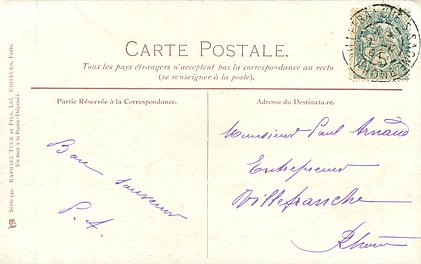 CARTE POSTALE.
Tous les pays étrangers n'acceptent pas la correspondance au recto
(se renseigner à la poste).
Partie Réservée à la Correspondance.
Adresse du Destinataire.
Bon souvenir
P. A.
Monsieur Paul Arnaud
Entrepreneur
Villefranche
Rhône
RAPHAEL TUCK et FILS, Ld, EDITEURS, Paris.